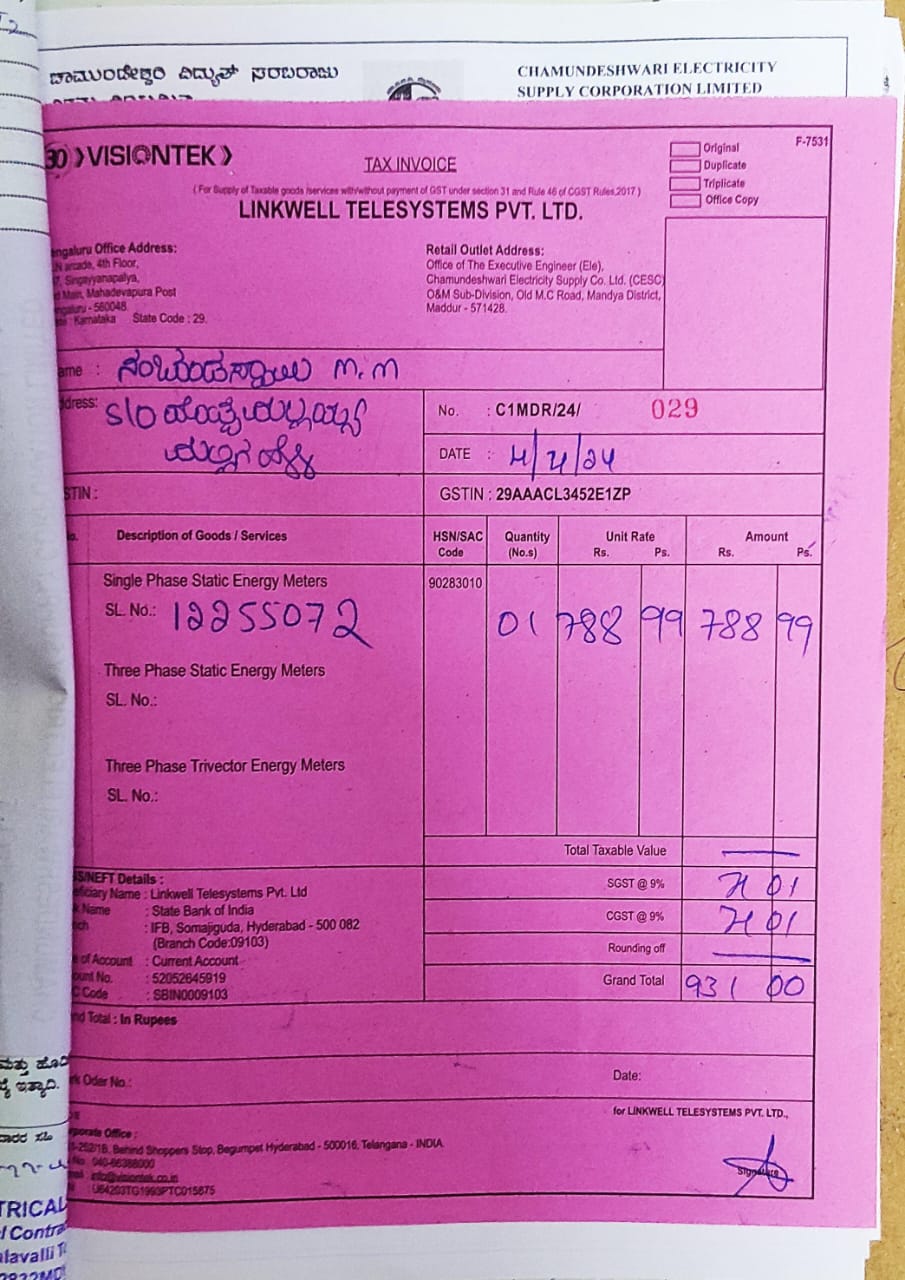 ಚಾಮುಂಡೇಶ್ವರಿ ವಿದ್ಯುತ್ ಸರಬರಾಜು
CHAMUNDESHWARI ELECTRICITY
SUPPLY CORPORATION LIMITED
30 VISIONTEK
TAX INVOICE
Original
Duplicate
Triplicate
Office Copy
F-7531
( For Supply of Taxable goods /services with/without payment of GST under section 31 and Rule 46 of CGST Rules,2017 )
LINKWELL TELESYSTEMS PVT. LTD.
ngaluru Office Address:
N arcade, 4th Floor,
7, Singayyanapalya,
Main, Mahadevapura Post
ngaluru - 560048.
Karnataka State Code : 29.
Retail Outlet Address:
Office of The Executive Engineer (Ele),
Chamundeshwari Electricity Supply Co. Ltd. (CESC)
O&M Sub-Division, Old M.C Road, Mandya District,
Maddur - 571428.
ame : M.M
dress: S/O
No. : C1MDR/24/ 029
DATE : 4/4/24
STIN :
GSTIN : 29AAACL3452E1ZP
o. Description of Goods / Services HSN/SAC Code Quantity (No.s) Unit Rate Rs. Ps. Amount Rs. Ps.
Single Phase Static Energy Meters 90283010
SL. No.: 12255072 01 788 99 788 99
Three Phase Static Energy Meters
SL. No.:
Three Phase Trivector Energy Meters
SL. No.:
Total Taxable Value
SGST @ 9% 71 01
CGST @ 9% 71 01
Rounding off
Grand Total 931 00
S/NEFT Details :
eficiary Name : Linkwell Telesystems Pvt. Ltd
k Name : State Bank of India
nch : IFB, Somajiguda, Hyderabad - 500 082
(Branch Code:09103)
e of Account : Current Account
ount No. : 52052645919
C Code : SBIN0009103
nd Total : In Rupees
rk Oder No.: Date:
for LINKWELL TELESYSTEMS PVT. LTD.,
rporate Office :
-252/1B, Behind Shoppers Stop, Begumpet Hyderabad - 500016, Telangana - INDIA
No 040-66388000
info@visiontek.co.in
U64203TG1993PTC015675
Signature
ಮತ್ತು
ಇತ್ಯಾದಿ.
TRICAL
l Contra
alavalli